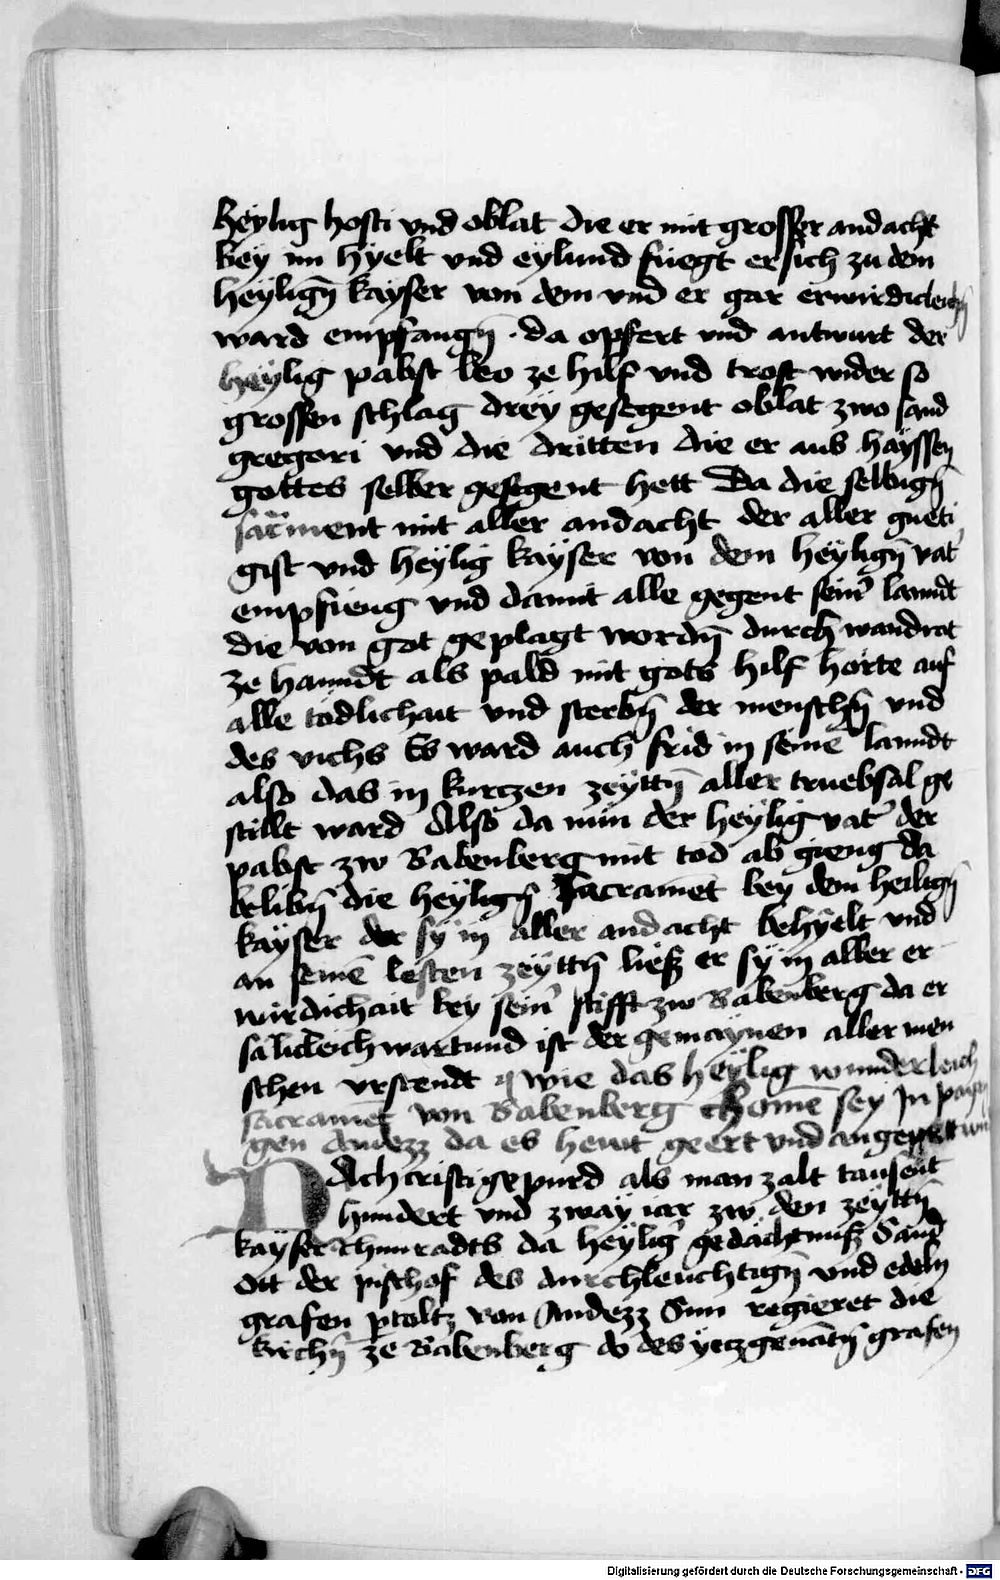 heylig hosti vnd oblat die er mit grosser andacht
bey im hyelt vnd eylund fuegt er sich zu dem
heyligñ kayser von dem vnd er gar erwirdicleichñ
ward empfangñ · da opfert vnd antwurt der
heylig pabst leo ze hilf vnd trost wider so
grossen schlag drey gesegent oblat zwo sand
gregori vnd die dritten die er aus hayssen
gottes selber gesegent hett Da die selbigñ
sacr̃ment mit aller andacht der aller gueti
gist vnd heylig kayser von dem heyligñ vat̉
empfieng vnd damit alle gegent sein̉ lanndt
die von got geplagt wordñ durch wandrat
ze hanndt als pald mit gots hilf horte auf
alle todlichait vnd sterbñ der menschñ vnd
des vichs Es ward auch frid in seinē lanndt
also das in kurczen zeyttñ aller truebsal ge
stillt ward Also da nun der heylig vat̉ der
pabst zw Babenberg mit tod ab gieng da
belibñ die heyligñ Sacramēt bey dem heiligñ
kayser der sy in aller andacht behyelt vnd
an seinē lesten zeyttñ liesz er sy in aller er
wirdichait bey sein̉ stifft zw Babenberg da er
salicleich wartund ist der gemaynen aller men
schen vrstendt wie das heylig wunderleich
sacramēt von Babenberg chomē sey In
gen Andezz da es hewt geert vnd angepett
NAch cristi gepurd als man zalt tausent
hundert vnd zway iar zw den zeyttñ
kayser Chunradts da heylig̉ gedächtnusz Sand
Ott der pischof des durchleuchtigñ vnd edeln
grafen ptoltz von Andezz Sun regieret die
kirchñ ze Babenberg do des yetzgenātñ grafen
Digitalisierung gefördert durch die Deutsche Forschungsgemeinschaft - DFG